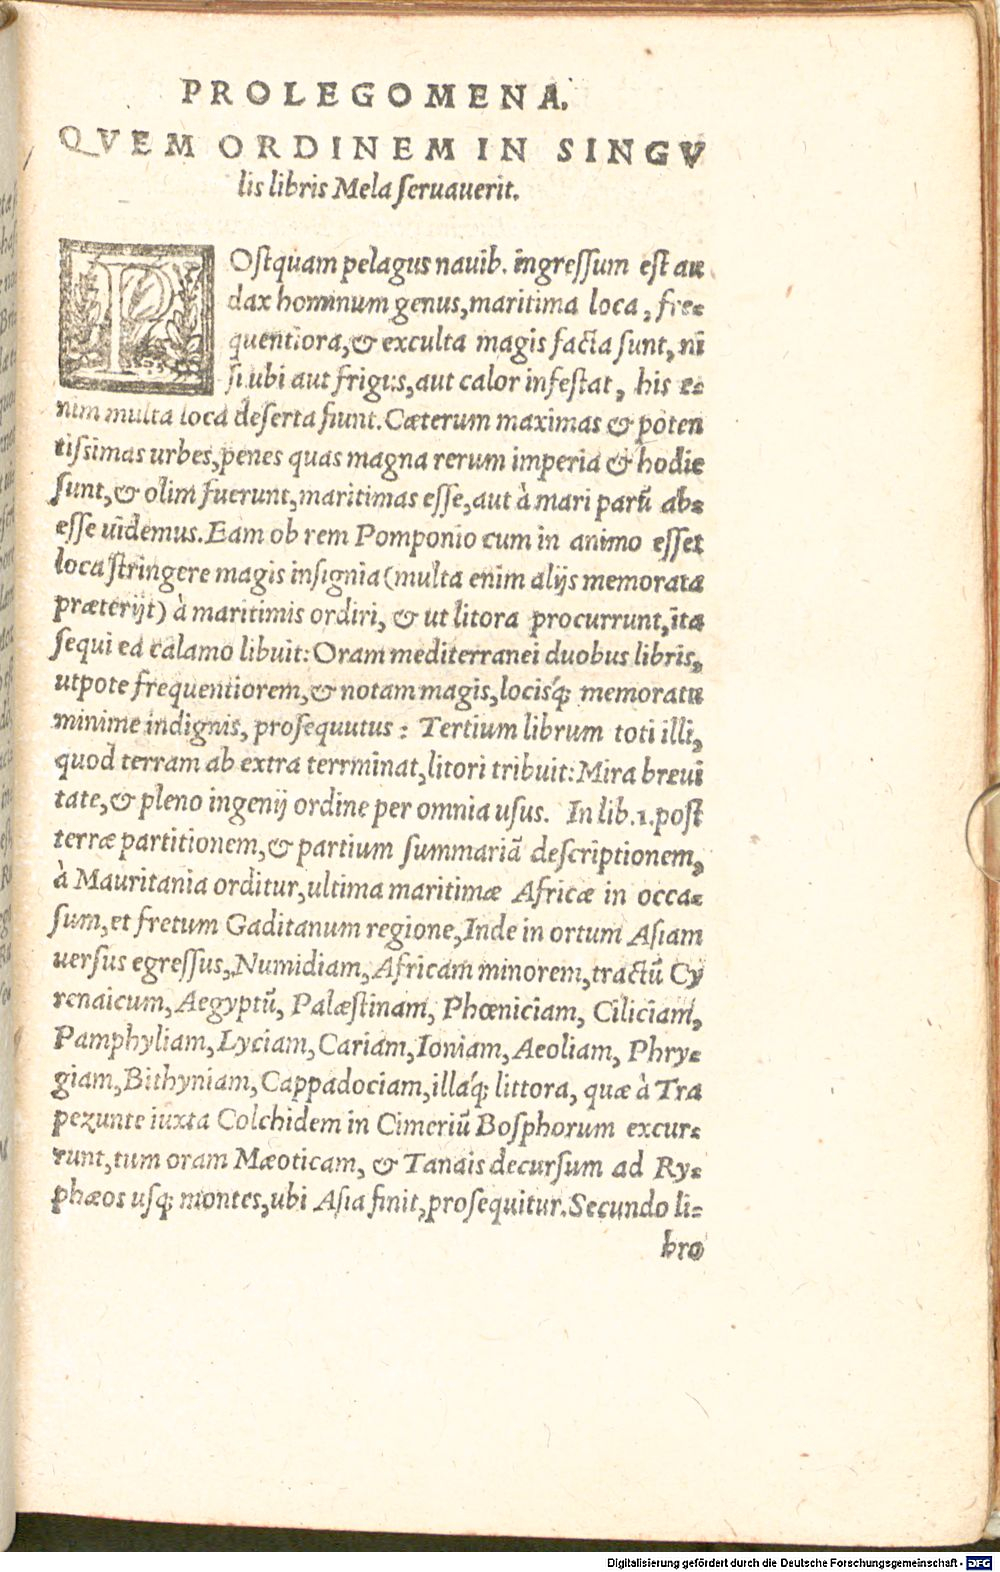 PROLEGOMENA.
QVEM ORDINEM IN SINGV
lis libris Mela ſeruauerit.
POſtquam pelagus nauib. ingreſſum eſt au
dax hominum genus, maritima loca, fre-
quentiora, & exculta magis facta ſunt, ni
ſi ubi aut frigus, aut calor infeſtat, his e-
nim multa loca deſerta fiunt. Cæterum maximas & poten
tiſsimas urbes, penes quas magna rerum imperia & hodie
ſunt, & olim fuerunt, maritimas eſſe, aut à mari parū ab-
eſſe uidemus. Eam ob rem Pomponio cum in animo eſſet
loca ſtringere magis inſignia (multa enim alijs memorata
præterijt) à maritimis ordiri, & ut litora procurrunt, ita
ſequi ea calamo libuit: Oram mediterranei duobus libris,
utpote frequentiorem, & notam magis, locisq́; memoratu
minime indignis, proſequutus: Tertium librum toti illi,
quod terram ab extra terrminat, litori tribuit: Mira breui
tate, & pleno ingenij ordine per omnia uſus. In lib. 1. poſt
terræ partitionem, & partium ſummariā deſcriptionem,
à Mauritania orditur, ultima maritimæ Africæ in occa-
ſum, et fretum Gaditanum regione, Inde in ortum Aſiam
uerſus egreſſus, Numidiam, Africam minorem, tractū Cy
renaicum, Aegyptū, Palæſtinam, Phœniciam, Ciliciam,
Pamphyliam, Lyciam, Cariam, Ioniam, Aeoliam, Phry-
giam, Bithyniam, Cappadociam, illaq́; littora, quæ à Tra
pezunte iuxta Colchidem in Cimeriū Boſphorum excur-
runt, tum oram Mæoticam, & Tanais decurſum ad Ry-
phæos uſq; montes, ubi Aſia finit, proſequitur. Secundo li-
bro
Digitalisierung gefördert durch die Deutsche Forschungsgemeinschaft - DFG